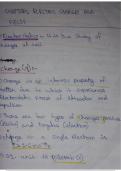 CHAPTER 1: ELECTRIC CHARGES AND
FIELDS
Electrostatics - It is the study of
charges at rest
charge (q) :-
Charge is an property of
matter due to which it experiences
electrostatic force of attraction and
repulsion
There are two types of charges positive
and negative (electron)
Charge on a single electron is
SI unit is